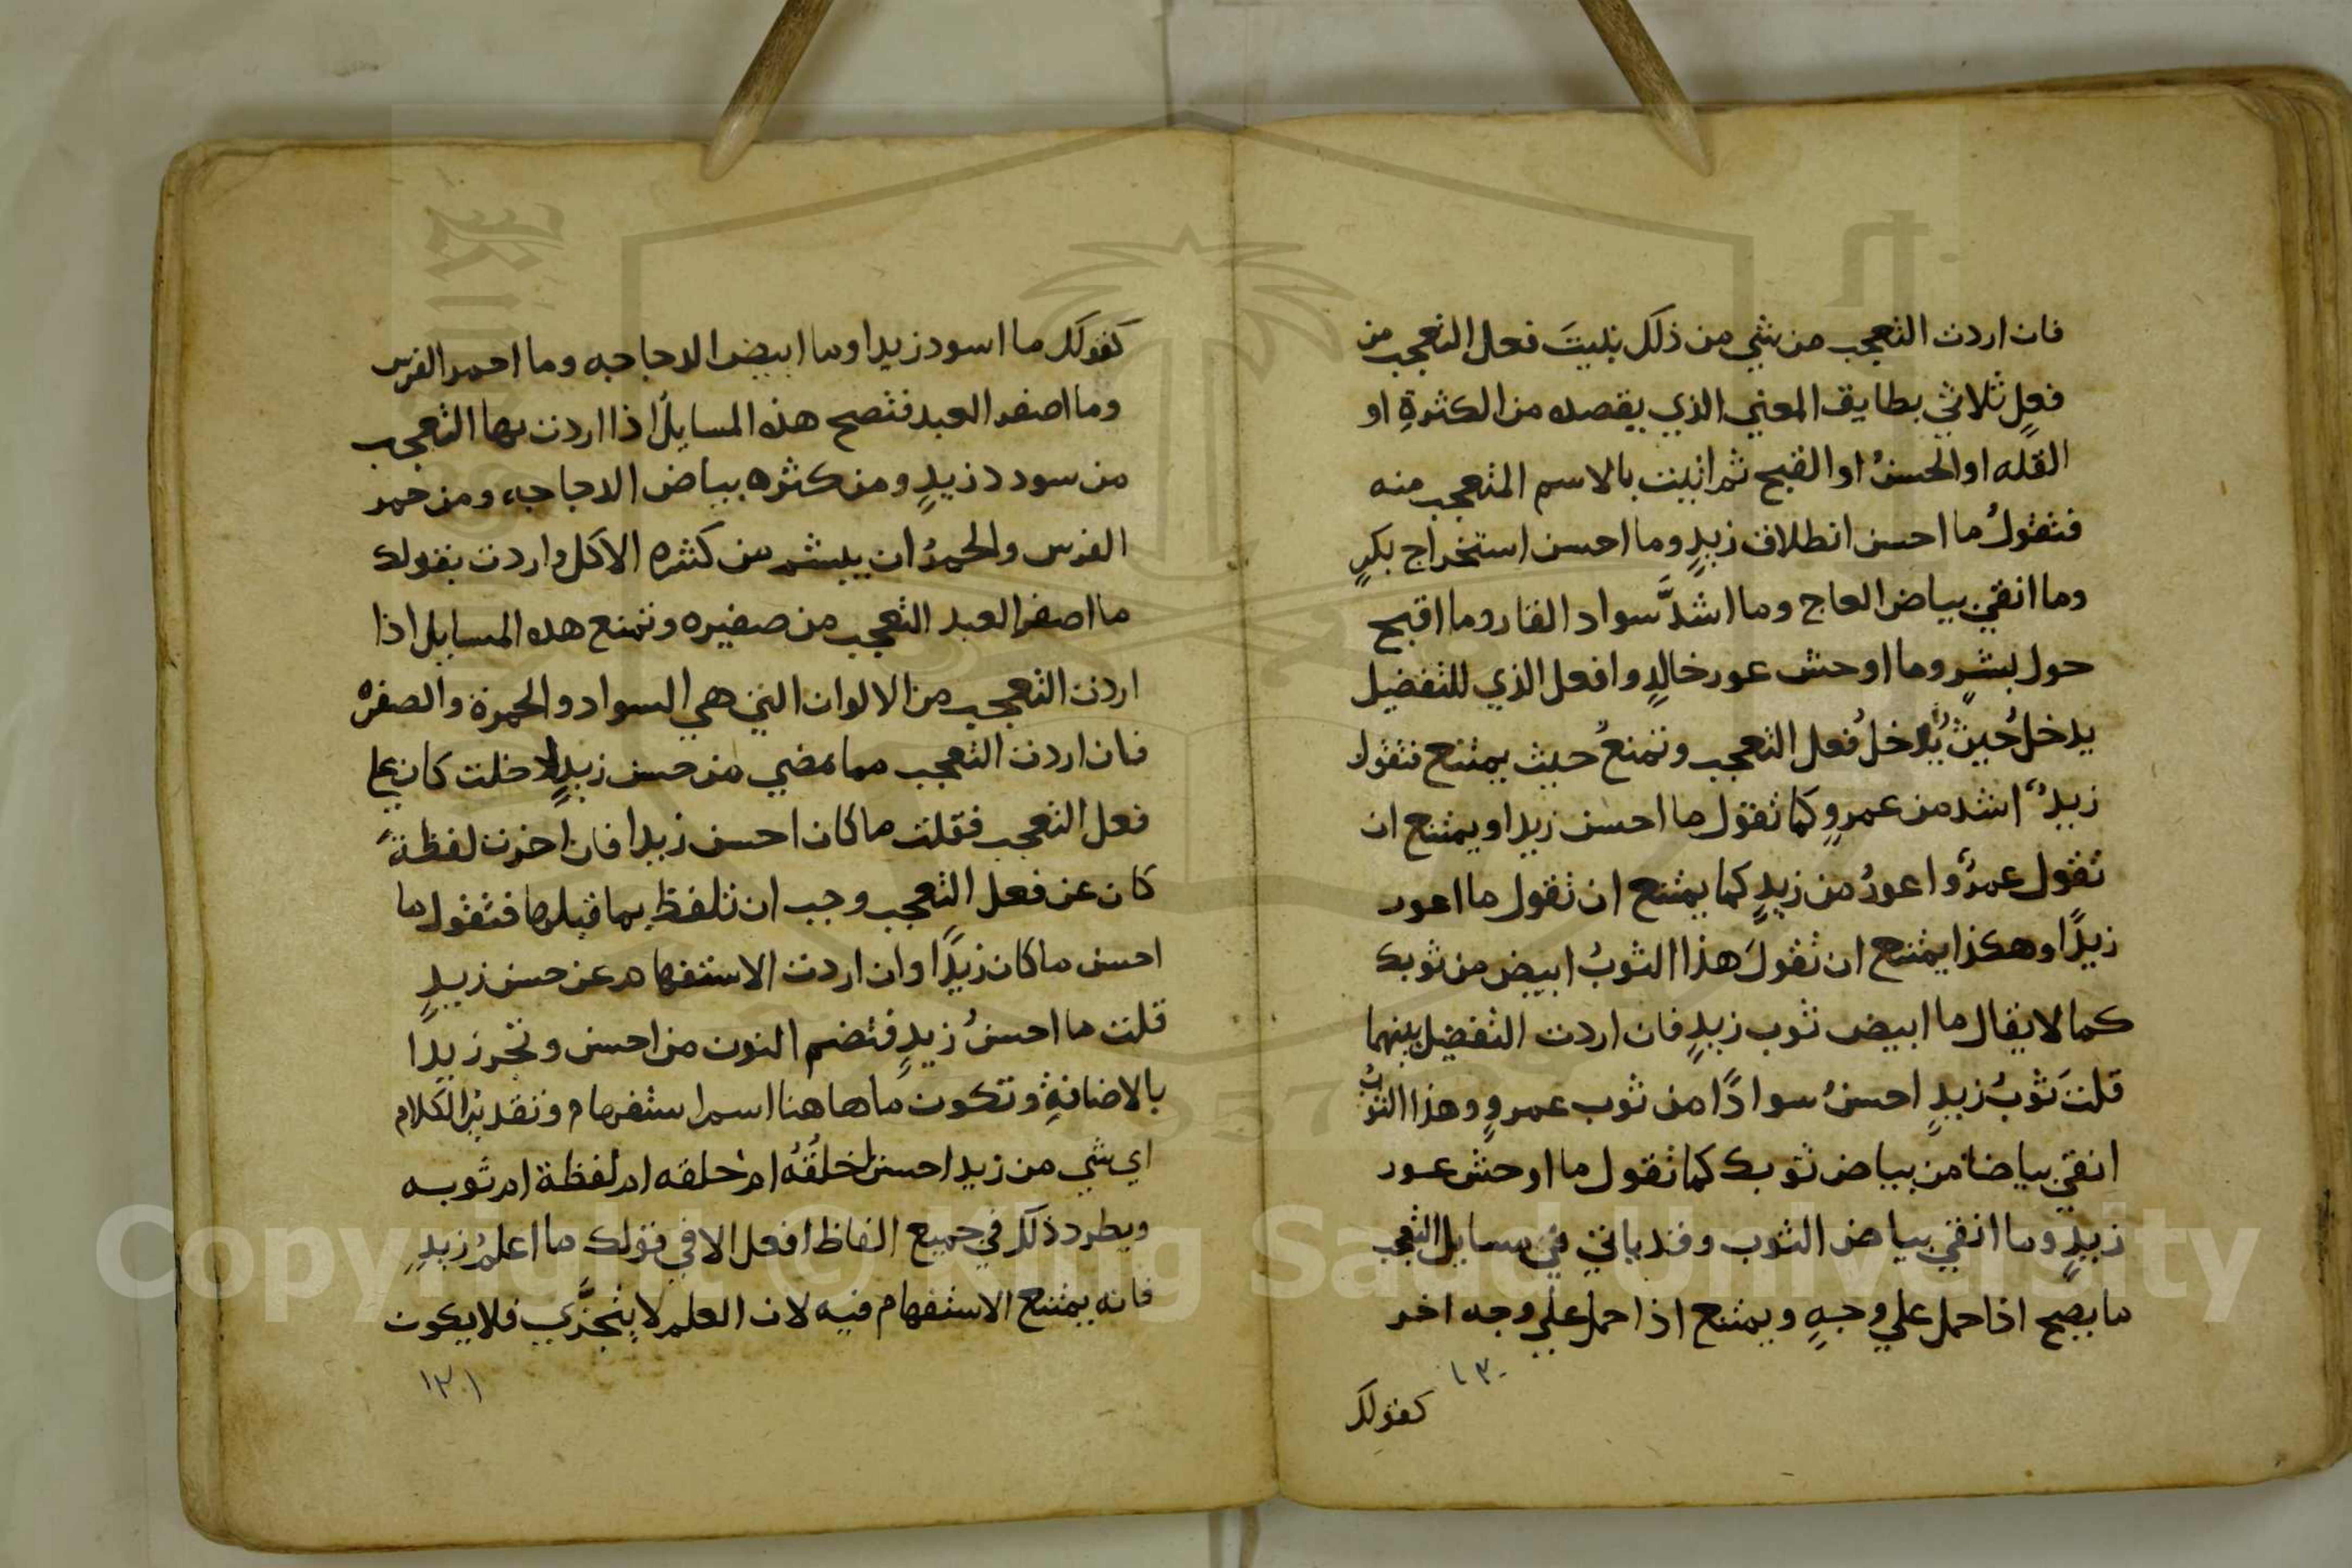 فان اردت التعجب من شي من ذلك بنيتَ فعل التعجب من
فعلٍ ثلاثي يطابق المعني الذي يقصده من الكثرةِ او
القله او الحسنُ او القبح ثم اتيت بالاسم المتعجب منه
فتقولُ ما احسن انطلاق زيدٍ وما احسن استخراج بكرٍ
وما انقي بياض العاج وما اشدَّ سواد القار وما اقبح
حول بشرٍ وما اوحش عور خالدٍ وافعل الذي للتفضيل
يدخلُ حيثُ يدخلُ فعل التعجب وتمنعُ حيث يمتنع فتقول
زيدٌ اشد من عمرٍو كما تقول ما احسن زيدا ويمتنع ان
تقول عمرٌو اعورُ من زيدٍ كما يمتنع ان تقول ما اعور
زيدًا وهكذا يمتنع ان تقولَ هذا الثوبُ ابيض من ثوبك
كما لا يقال ما ابيض ثوب زيدٍ فان اردت التفضيل بينهما
قلتَ ثوبُ زيدٍ احسنُ سوادًا من ثوب عمرٍو وهذا الثوبُ
انقي بياضا من بياض ثوبك كما تقول ما اوحش عور
زيدٍ وما انقي بياض الثوب وقد ياتي في مسايل التعجب
ما يصح اذا حمل علي وجهٍ ويمتنع اذا حمل علي وجه اخر
١٣٠
كقولك
كقولك ما اسود زيدا وما ابيض الدجاجه وما احمر الفرس
وما اصفر العبد فتصح هذه المسايل اذا اردت بها التعجب
من سودد زيدٍ ومن كثره بياض الدجاجه ومن حمر
الفرس والحمرُ ان يبشم من كثره الاكل واردت بقولك
ما اصفر العبد التعجب من صفيره وتمنع هده المسايل اذا
اردت التعجب من الالوان التي هي السواد والحمرة والصفره
فان اردت التعجب مما مضي من حسن زيدٍ ادخلت كان علي
فعل التعجب فقلت ما كان احسن زيدا فان اخرت لفظةَ
كان عن فعل التعجب وجب ان تلفظ بما قبلها فتقول ما
احسن ما كان زيدًا وان اردت الاستفهام عن حسن زيدٍ
قلت ما احسنُ زيدٍ فتضم النون من احسن وتجر زيدا
بالاضافةِ وتكون ما هاهنا اسم استفهام وتقديرُ الكلام
اي شي من زيد احسن اخلقُهُ ام خلقه ام لفظة ام ثوبه
ويطرد ذلك في جميع الفاظ افعل الا في قولك ما اعلمُ زيدٍ
فانه يمتنع الاستفهام فيه لان العلم لا يتجزَّي فلا يكون
١٣١
Copyright © King Saud University